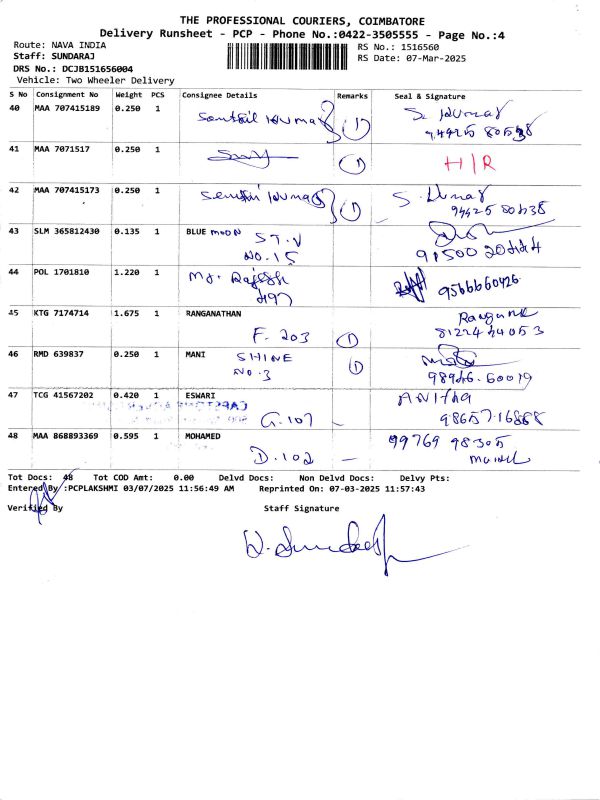 THE PROFESSIONAL COURIERS, COIMBATORE
Delivery Runsheet - PCP - Phone No.:0422-3505555 - Page No.:4
Route: NAVA INDIA
Staff: SUNDARAJ
DRS No.: DCJB151656004
Vehicle: Two Wheeler Delivery
RS No.: 1516560
RS Date: 07-Mar-2025
S No Consignment No Weight PCS Consignee Details Remarks Seal & Signature
40 MAA 707415189 0.250 1 Senthil Kumar 1 S. Kumar
94425 80538
41 MAA 7071517 0.250 1 1 H/R
42 MAA 707415173 0.250 1 Senthil Kumar 1 S. Kumar
94425 80538
43 SLM 365812430 0.135 1 BLUE MOON ST.V
NO.15 91500 20444
44 POL 1701810 1.220 1 Mr. Rajesh 9566660426
45 KTG 7174714 1.675 1 RANGANATHAN
F. 203 1 81224 44053
46 RMD 639837 0.250 1 MANI SHINE
NO.3 1 98946.60019
47 TCG 41567202 0.420 1 ESWARI ANITHA
G.107 – 98657.16868
48 MAA 868893369 0.595 1 MOHAMED 99769 98305
D.102 –
Tot Docs: 48 Tot COD Amt: 0.00 Delvd Docs: Non Delvd Docs: Delvy Pts:
Entered By :PCPLAKSHMI 03/07/2025 11:56:49 AM Reprinted On: 07-03-2025 11:57:43
Verified By Staff Signature